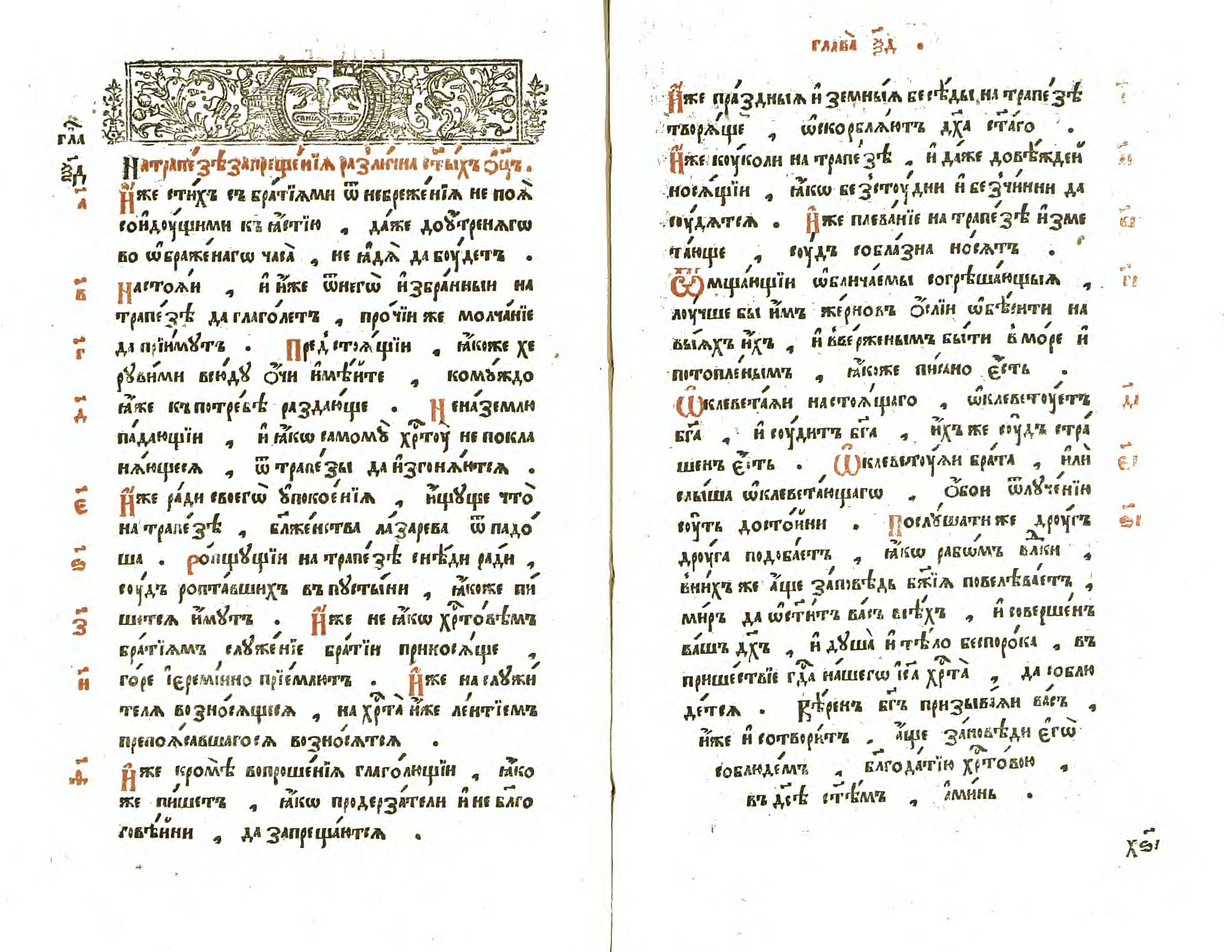 гла
ѯ҃д
На трапе́зѣ запреще́нїѧ разли́чна ст҃ы́хъ ѻ҃ц҃ъ.
а҃
И҆́же сти́хъ съ бра́тїѧми ѿ небреже́нїѧ не поѧ̀
соидоу́щими къ ꙗ҆стїю , да́же до оу҆́тренѧгѡ
во ѡ҆браже́нагѡ часа̀ , не ꙗ҆ды́й да боу́детъ .
в҃
Настоѧ́и , и҆ и҆́же ѿ негѡ̀ и҆збра́нныи на
трапе́зѣ да глаго́летъ , про́чїи же молча́нїе
г҃
да прїи́мутъ . Предстоѧ́щїи , ꙗ҆́коже хе
руви́ми всю́ду ѻ҆́чи и҆мѣ́йте , кому́ждо
д҃
ꙗ҆́же къ потре́бѣ раздаю́ще . Не на́ землю
па́дающїи , и҆ ꙗ҆́кѡ самомꙋ̀ хрⷭ҇тоу̀ не покла
нѧ́ющесѧ , ѿ трапе́зы да и҆згонѧ́ютсѧ .
є҃
И҆́же ра́ди своегѡ̀ ᲂу҆покое́нїѧ , и҆́щуще что̀
на трапе́зѣ , бл҃же́нства ла́зарева ѿпадо́
ѕ҃
ша . Ро́пщущїи на трапе́зѣ снѣ́ди ра́ди ,
соу́дъ ропта́вшихъ в пусты́ни , ꙗ҆́коже пи́
з҃
шетсѧ и҆́мутъ . И҆́же не ꙗ҆́кѡ хрⷭ҇то́вѣмъ
бра́тїѧмъ служе́нїе бра́тїи приносѧ́ще ,
и҃
го́ре і҆еремі́ино прїе́млютъ . И҆́же на служи́
телѧ возносѧ́щесѧ , на хрⷭ҇та̀ и҆́же ле́нтїемъ
препоѧ́савшагосѧ возно́сѧтсѧ .
ѳ҃
И҆́же кромѣ̀ вопроше́нїѧ глаго́лющїи , ꙗ҆́ко
же пи́шетъ , ꙗ҆́кѡ продерза́тели и҆ не бл҃го
говѣ́йни , да запреща́ютсѧ .
глава̀ ѯ҃д .
И҆́же пра́здныѧ и҆ земны́ѧ бесѣ́ды на трапе́зѣ
творѧ́ще , ѡ҆скорблѧ́ютъ дх҃а ст҃а́го .
И҆́же коу́коли на трапе́зѣ , и҆ да́же до вѣ́ждей
носѧ́щїи , ꙗ҆́кѡ безстоу́дни и҆ безчи́нни да
соу́дѧтсѧ . И҆́же плева́нїе на трапе́зѣ и҆зме
та́юще , соу́дъ собла́зна но́сѧтъ .
Ѿмща́ющїи ѡ҆блича́емы согрѣша́ющыѧ ,
лоу́чше бы и҆́мъ же́рновъ ѻ҆́слїи ѡ҆бѣ́сити на
вы́ѧхъ и҆́хъ , и҆ вве́рженымъ бы́ти в мо́ре и҆
потопле́нымъ , ꙗ҆́коже пи́сано є҆́сть .
д҃і
Ѡ҆клевета́ѧи настоѧ́щаго , ѡ҆клевету́етъ
бг҃а , и҆ соу́дитъ бг҃а , и҆́хъ же соу́дъ стра́
є҃і
шенъ є҆́сть . Ѡ҆клевету́ѧи бра́та , и҆лѝ
слы́ша ѡ҆клевета́ющагѡ , ѻ҆́бои ѿлуче́нїю
ѕ҃і
соу́ть досто́йни . Послу́шати же дроу́гъ
дроу́га подоба́етъ , ꙗ҆́кѡ рабѡ́мъ влⷣки ,
в ни́хъ же а҆́ще за́повѣдь бж҃їѧ повелѣва́етъ ,
ми́ръ да ѡ҆ст҃и́тъ ва́съ всѣ́хъ , и҆ соверше́нъ
ва́шъ дх҃ъ , и҆ душа̀ и҆ тѣ́ло беспоро́ка , въ
прише́ствїе гдⷭ҇а на́шегѡ і҆с҃а хрⷭ҇та̀ , да соблю
де́тсѧ . Вѣ́ренъ бг҃ъ призыва́ѧи ва́съ ,
и҆́же и҆ сотвори́тъ . а҆́ще за́повѣди є҆гѡ̀
соблюде́мъ , бл҃года́тїю хрⷭ҇то́вою ,
въ дс҃ѣ ст҃ѣ́мъ , а҆ми́нь .
хѕ҃і